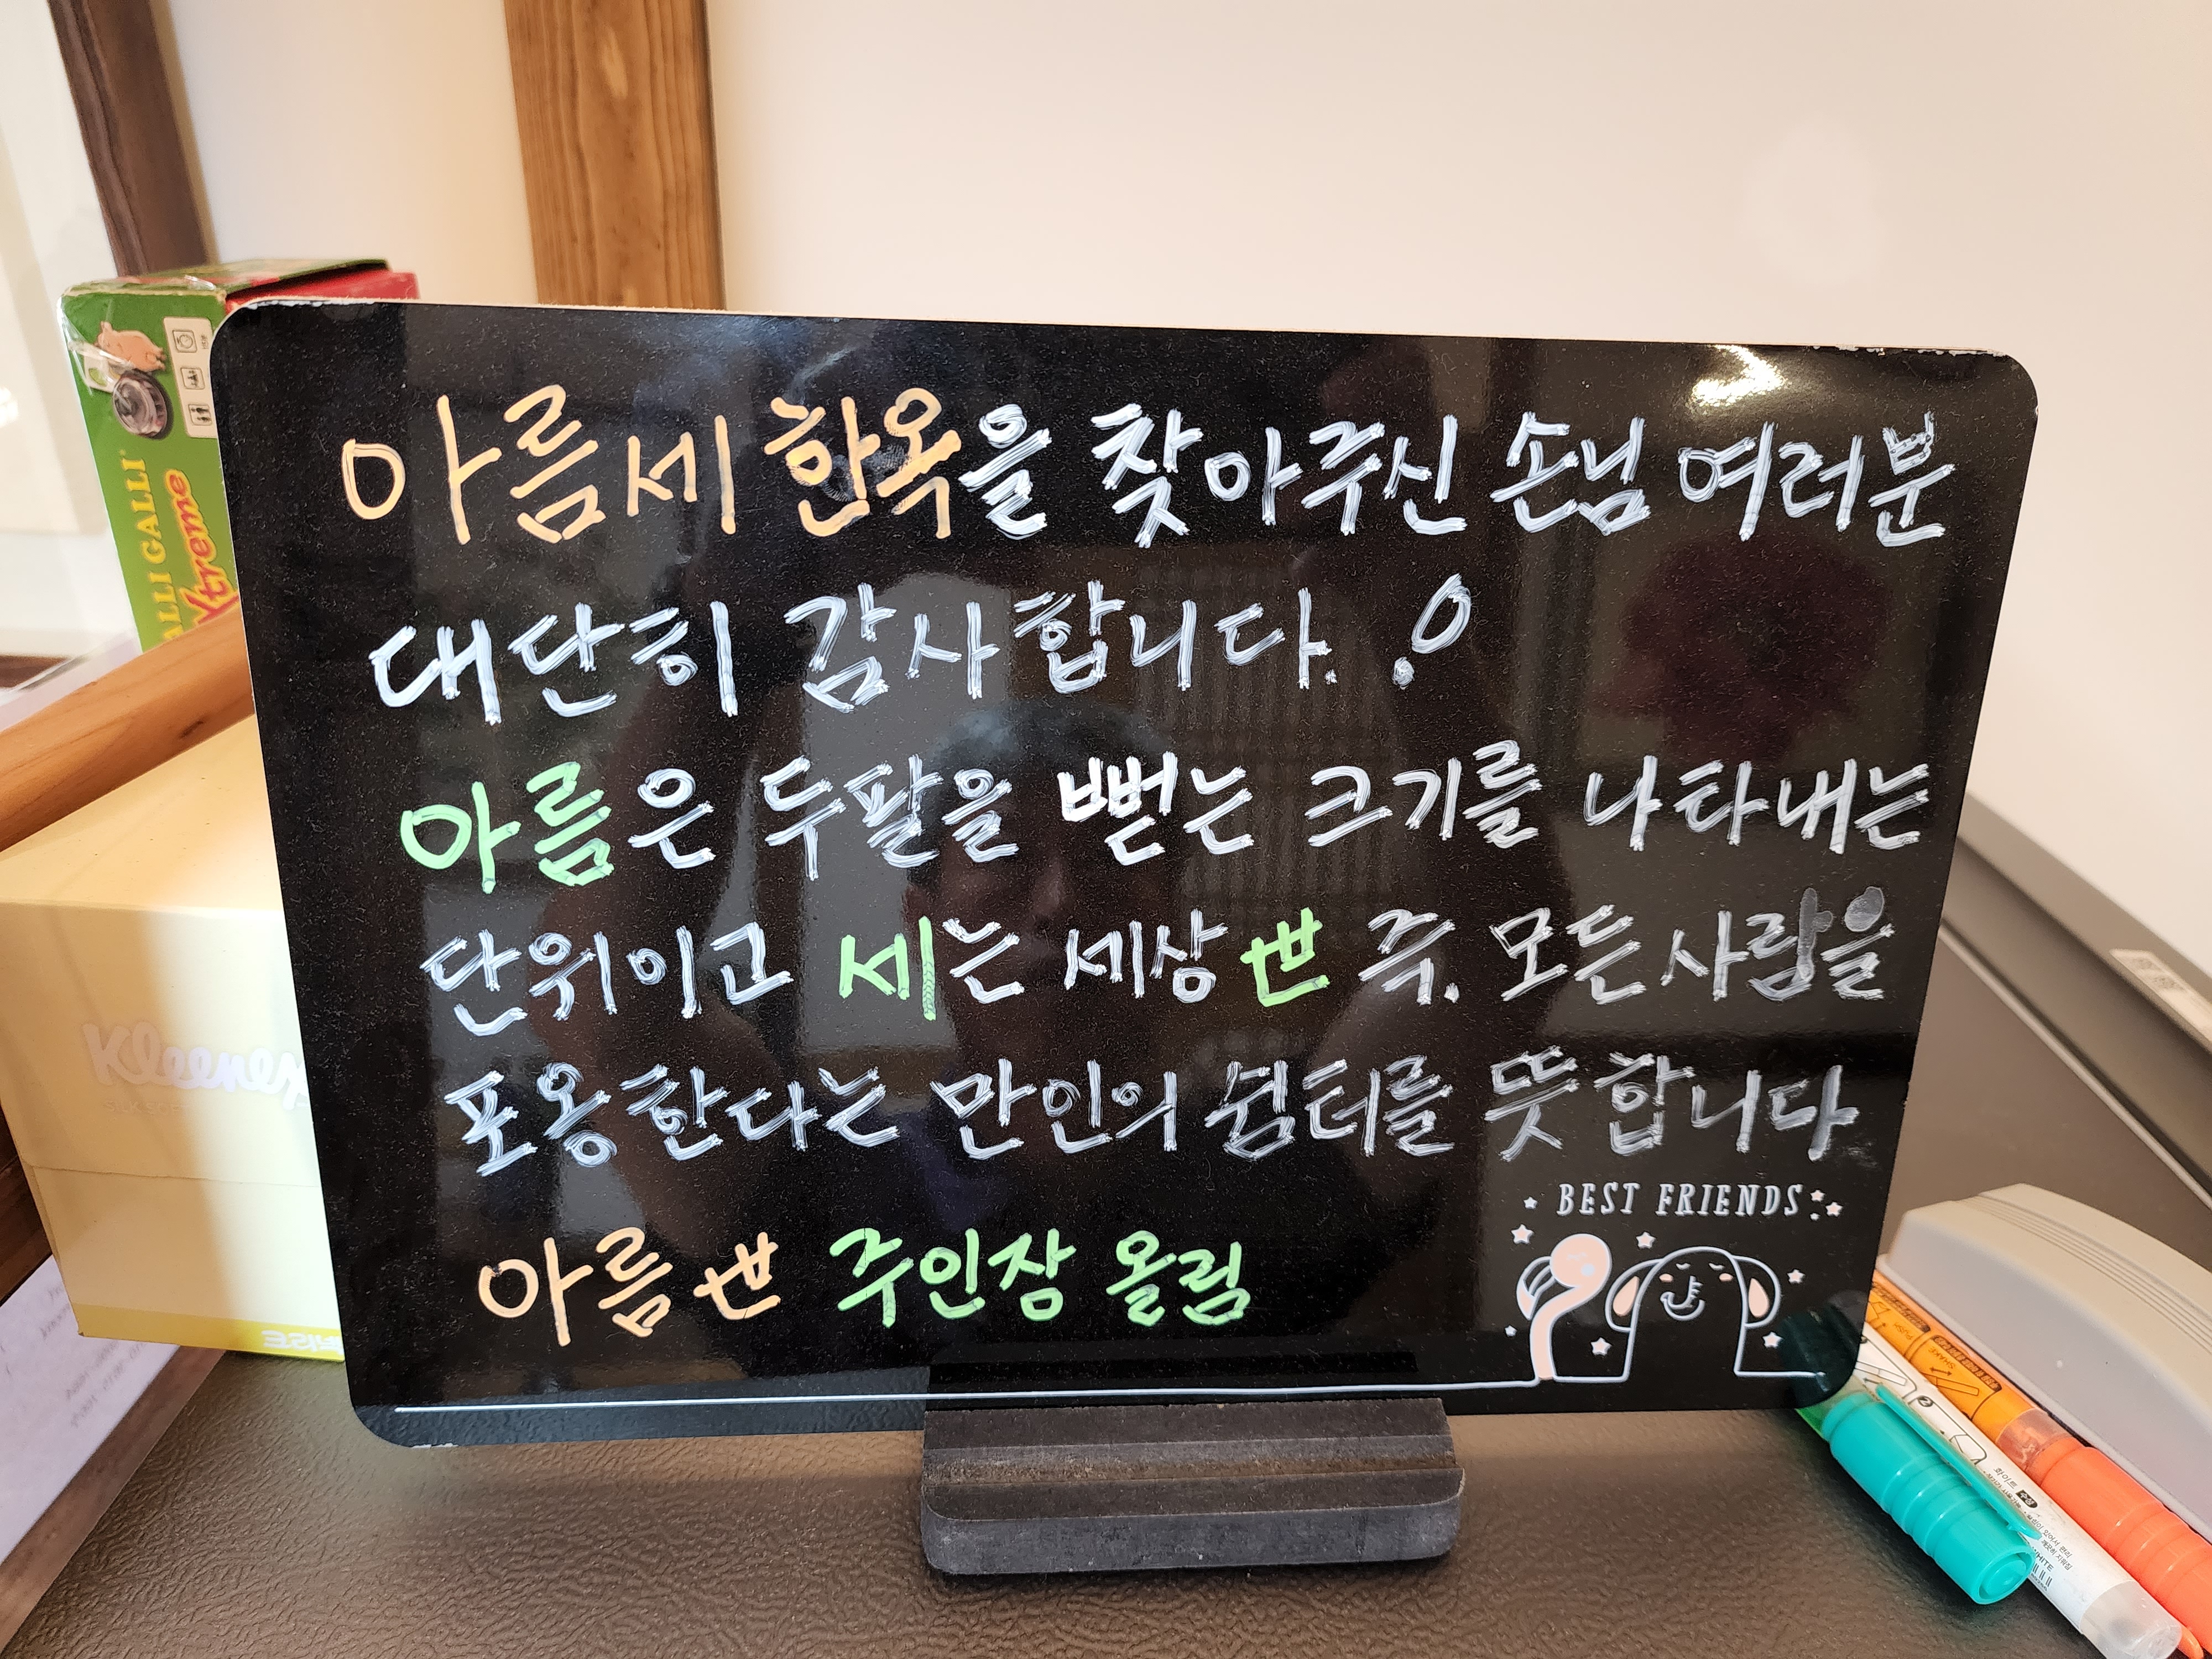 아름세 한옥을 찾아주신 손님 여러분
대단히 감사합니다. !
아름은 두팔을 뻗는 크기를 나타내는
단위이고 세는 세상 世 즉, 모든 사람을
포옹한다는 만인의 쉼터를 뜻합니다
아름世 주인장 올림
BEST FRIENDS
Xtreme
Kleenex